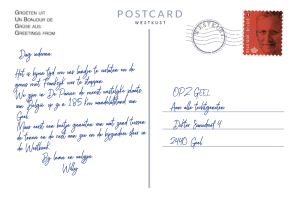 GROETEN UIT
UN BONJOUR DE
GRÜSSE AUS
GREETINGS FROM
POSTCARD
WESTKUST
Dag iedereen
Het is bijna tijd om ons landje te verlaten en de
grens met Frankrijk over te stappen.
We zijn in De Panne de meest westelijke plaats
van België op zo'n 185 km wandelafstand van
Geel.
Maar eerst een beetje genieten van wat zand tussen
de tenen en de rust aan zee en de bijzondere sfeer in
de Westhoek.
Bij leven en welzijn
Willy
OPZ GEEL
Aan alle tochtgenoten
Dokter Sanodreef 4
2440 Geel